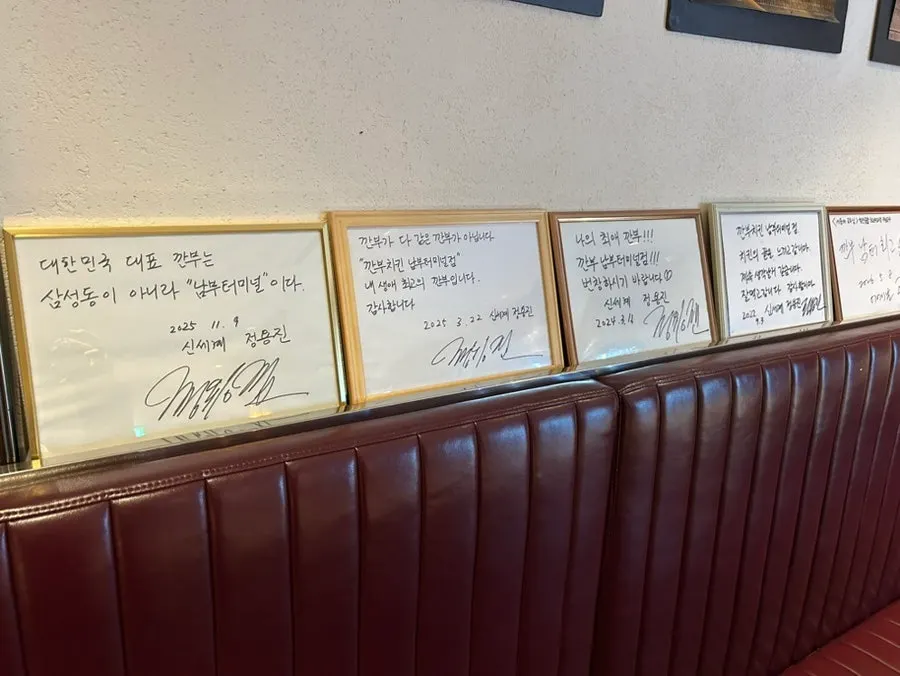 대한민국 대표 깐부는
삼성동이 아니라 "남부터미널"이다.
2025 11. 9
신세계 정용진
깐부가 다 같은 깐부가 아닙니다
"깐부치킨 남부터미널점"
내 생애 최고의 깐부입니다.
감사합니다
2025 3.22 신세계 정용진
나의 최애 깐부!!!
깐부 남부터미널점!!!
번창하시기 바랍니다♡
신세계 정용진
2024
깐부치킨 남부터미널점
치킨의 품격 느끼고갑니다.
계속 생각날거 같습니다.
잘먹고갑니다 감사합니다.
신세계 정용진
깐부 남터최고